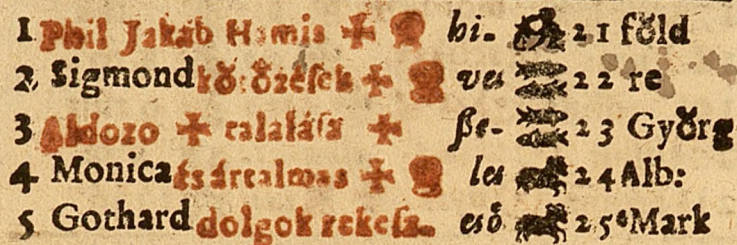 1 Phil Jakab Hamis bi- 21 főld
2 Sigmond kő: őzések ves 22 re
3 Aldozo talalása ße- 23 Győrg
4 Monica és ártalmas les 24 Alb:
5 Gothard dolgok rekesz- eső 25 Mark